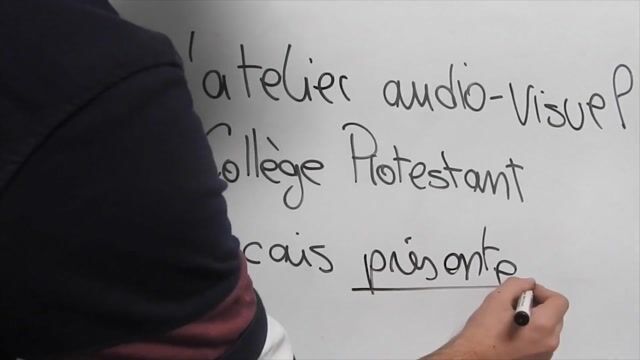 l'atelier audio-visuel
Collège Protestant
cais présente